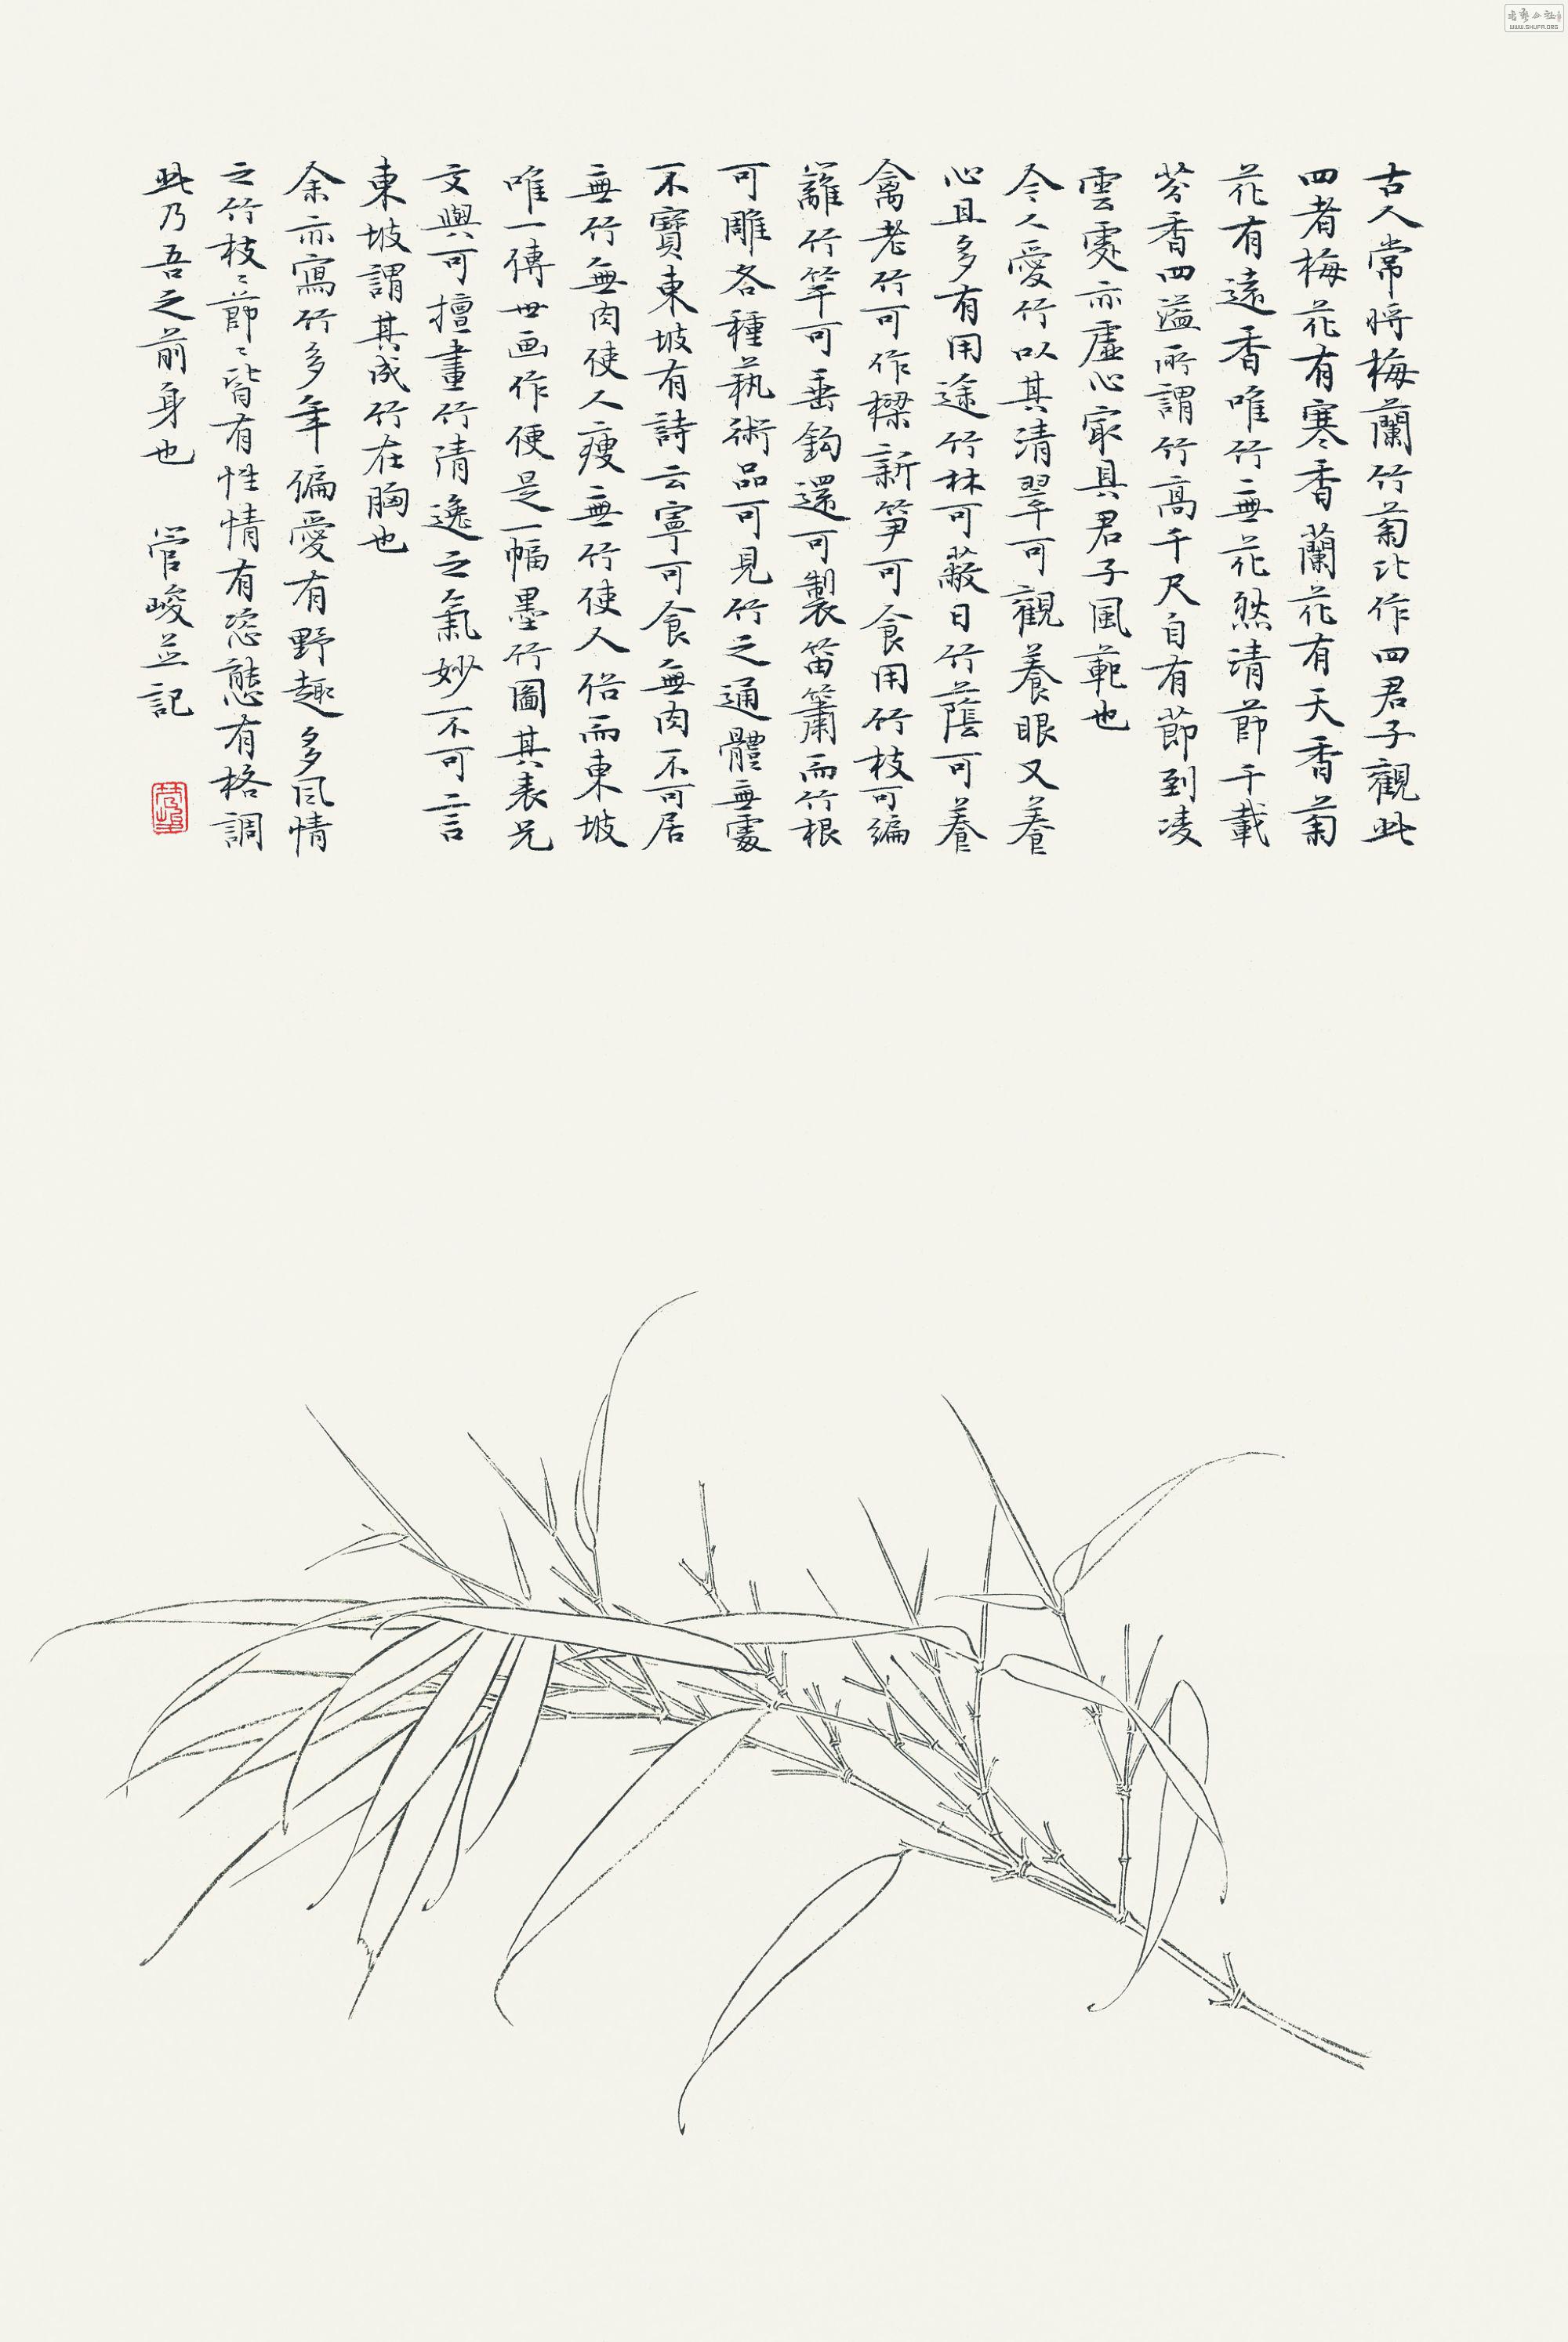 古人常將梅蘭竹菊比作四君子觀此
四者梅花有寒香蘭花有天香菊
花有遠香唯竹無花然清節千載
芬香四溢所謂竹高千尺自有節到凌
雲處亦虛心最具君子風範也
今人愛竹以其清翠可觀養眼又養
心且多有用途竹林可蔽日竹蔭可養
禽老竹可作樑新笋可食用竹枝可编
籬竹竿可垂鈎還可製笛簫而竹根
可雕各種藝術品可見竹之通體無處
不寶東坡有詩云寧可食無肉不可居
無竹無肉使人瘦無竹使人俗而東坡
唯一傳世画作便是一幅墨竹圖其表兄
文與可擅畫竹清逸之氣妙不可言
東坡謂其成竹在胸也
余亦寫竹多年偏愛有野趣多風情
之竹枝〻節〻皆有性情有姿態有格調
此乃吾之前身也 管峻並記
WWW.SHUFA.ORG